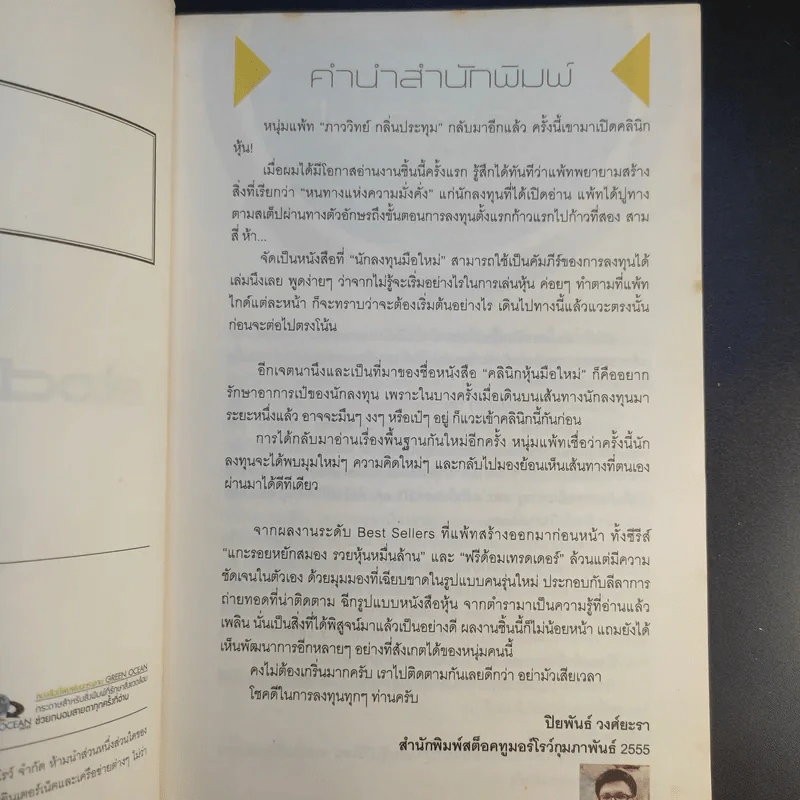 คำนำสำนักพิมพ์
หนุ่มแพ้ท "ภาววิทย์ กลิ่นประทุม" กลับมาอีกแล้ว ครั้งนี้เขามาเปิดคลินิก
หุ้น!
เมื่อผมได้มีโอกาสอ่านงานชิ้นนี้ครั้งแรก รู้สึกได้ทันทีว่าแพ้ทพยายามสร้าง
สิ่งที่เรียกว่า "หนทางแห่งความมั่งคั่ง" แก่นักลงทุนที่ได้เปิดอ่าน แพ้ทได้ปูทาง
ตามสเต็ปผ่านทางตัวอักษรถึงขั้นตอนการลงทุนตั้งแรกก้าวแรกไปก้าวที่สอง สาม
สี่ ห้า...
จัดเป็นหนังสือที่ "นักลงทุนมือใหม่" สามารถใช้เป็นคัมภีร์ของการลงทุนได้
เล่มนึงเลย พูดง่ายๆ ว่าจากไม่รู้จะเริ่มอย่างไรในการเล่นหุ้น ค่อยๆ ทำตามที่แพ้ท
ไกด์แต่ละหน้า ก็จะทราบว่าจะต้องเริ่มต้นอย่างไร เดินไปทางนี้แล้วแวะตรงนั้น
ก่อนจะต่อไปตรงโน้น
อีกเจตนานึงและเป็นที่มาของชื่อหนังสือ "คลินิกหุ้นมือใหม่" ก็คืออยาก
รักษาอาการเป๋ของนักลงทุน เพราะในบางครั้งเมื่อเดินบนเส้นทางนักลงทุนมา
ระยะหนึ่งแล้ว อาจจะมึนๆ งงๆ หรือเป๋ๆ อยู่ ก็แวะเข้าคลินิกนี้กันก่อน
การได้กลับมาอ่านเรื่องพื้นฐานกันใหม่อีกครั้ง หนุ่มแพ้ทเชื่อว่าครั้งนี้นัก
ลงทุนจะได้พบมุมใหม่ๆ ความคิดใหม่ๆ และกลับไปมองย้อนเห็นเส้นทางที่ตนเอง
ผ่านมาได้ดีทีเดียว
จากผลงานระดับ Best Sellers ที่แพ้ทสร้างออกมาก่อนหน้า ทั้งซีรีส์
"แกะรอยหยักสมอง รวยหุ้นหมื่นล้าน" และ "ฟรีด้อมเทรดเดอร์" ล้วนแต่มีความ
ชัดเจนในตัวเอง ด้วยมุมมองที่เฉียบขาดในรูปแบบคนรุ่นใหม่ ประกอบกับลีลาการ
ถ่ายทอดที่น่าติดตาม ฉีกรูปแบบหนังสือหุ้น จากตำรามาเป็นความรู้ที่อ่านแล้ว
เพลิน นั่นเป็นสิ่งที่ได้พิสูจน์มาแล้วเป็นอย่างดี ผลงานชิ้นนี้ก็ไม่น้อยหน้า แถมยังได้
เห็นพัฒนาการอีกหลายๆ อย่างที่สังเกตได้ของหนุ่มคนนี้
คงไม่ต้องเกริ่นมากครับ เราไปติดตามกันเลยดีกว่า อย่ามัวเสียเวลา
โชคดีในการลงทุนทุกๆ ท่านครับ
ปิยพันธ์ วงศ์ยะรา
สำนักพิมพ์สต็อคทูมอร์โรว์กุมภาพันธ์ 2555
GREEN OCEAN
กระดาษสำหรับสิ่งพิมพ์ที่รักษาสิ่งแวดล้อม
OCEAN ช่วยถนอมสายตาทุกครั้งที่อ่าน
โรว์ จำกัด ห้ามนำส่วนหนึ่งส่วนใดของ
อินเตอร์เน็ตและเครือข่ายต่างๆ ไม่ว่า